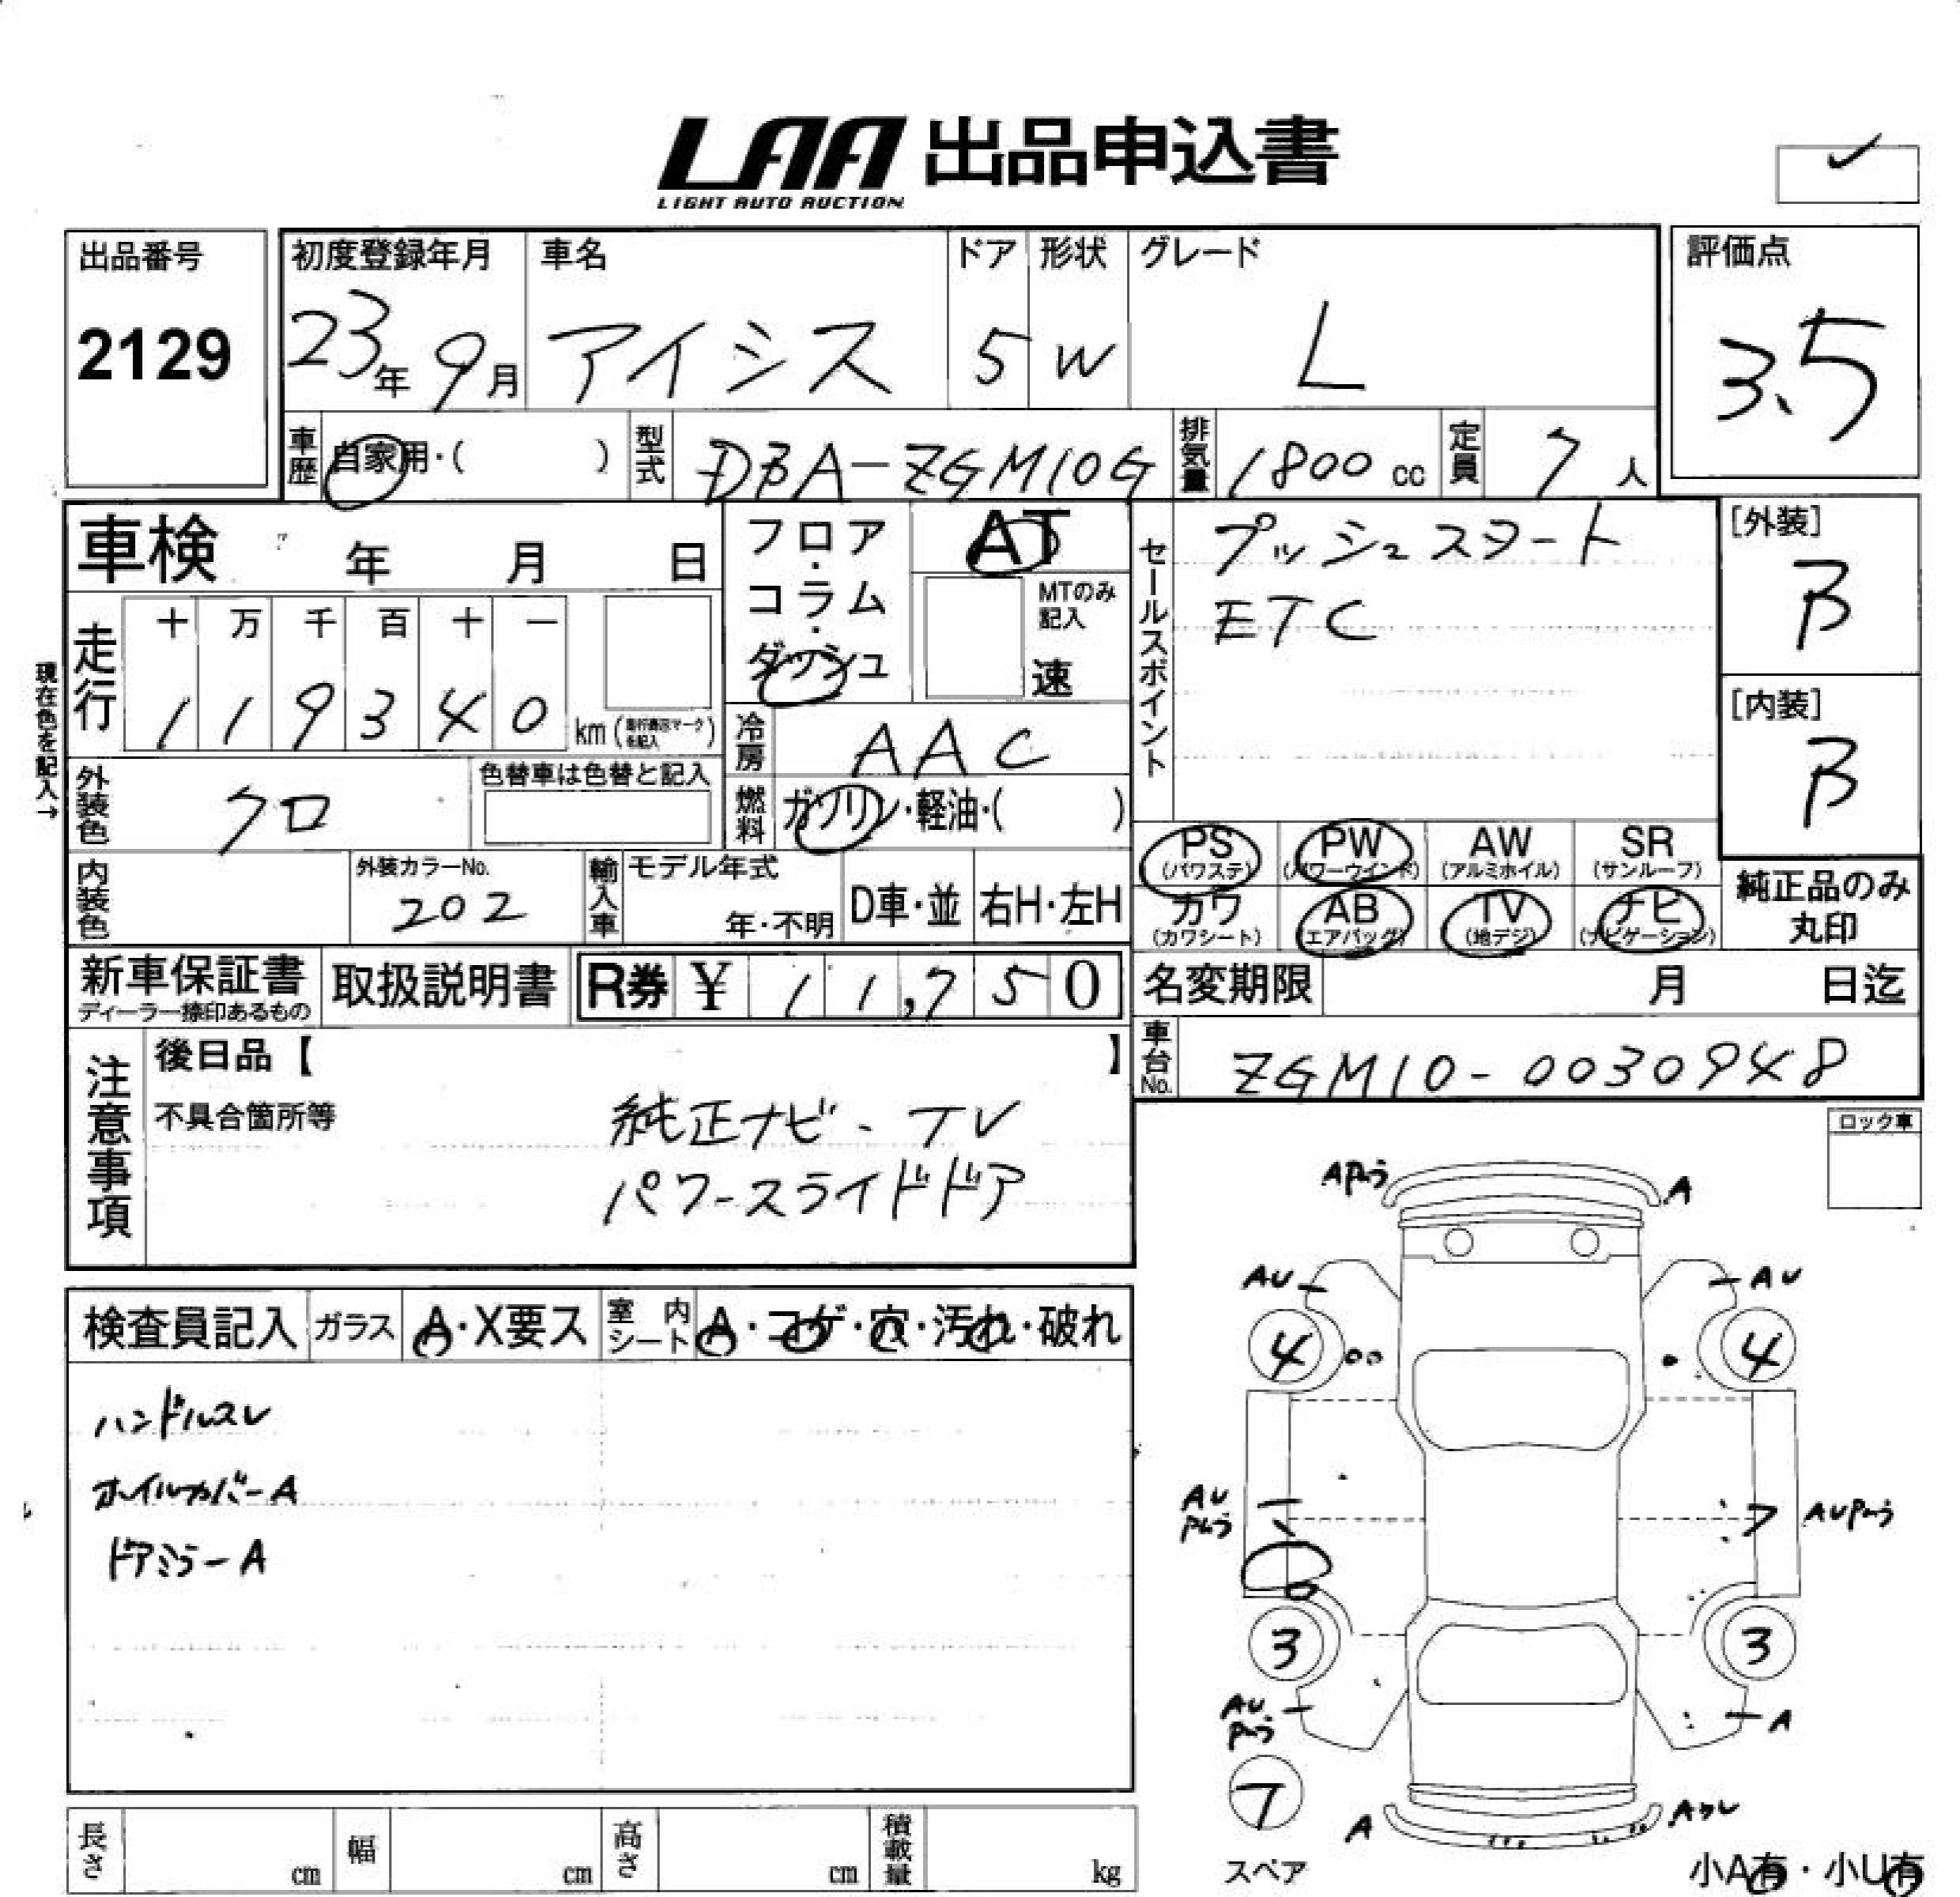 LAA 出品申込書
LIGHT AUTO AUCTION
出品番号
2129
初度登録年月
23年 9月
車名
アイシス
ドア
5
形状
W
グレード
L
評価点
3.5
車歴
自家用・( )
型式
DBA-ZGM10G
排気量
1800 cc
定員
7 人
車検 年 月 日
フロア・コラム・ダッシュ
AT
MTのみ記入
速
セールスポイント
プッシュスタート
ETC
[外装]
B
[内装]
B
現在色を記入→
走行
十 万 千 百 十 一
1 1 9 3 4 0 km
冷房
AAC
外装色
クロ
色替車は色替と記入
燃料
ガソリン・軽油・( )
内装色
外装カラーNo.
202
輸入車
モデル年式
年・不明
D車・並
右H・左H
PS
(パワステ)
PW
(パワーウインド)
AW
(アルミホイル)
SR
(サンルーフ)
カワ
(カワシート)
AB
(エアバッグ)
TV
(地デジ)
ナビ
(ナビゲーション)
純正品のみ
丸印
新車保証書
ディーラー捺印あるもの
取扱説明書
R券 ¥ 11,750
名変期限 月 日迄
車台No.
ZGM10-0030948
注意事項
後日品【 】
不具合箇所等
純正ナビ・TV
パワースライドドア
ロック車
検査員記入
ガラス
A・X要ス
室内シート
A・コゲ・穴・汚れ・破れ
ハンドルスレ
ホイルカバーA
ドアミラーA
A
AU
AU
4
4
AU
AU
3
3
AU
A
7
スペア
A
長さ cm
幅 cm
高さ cm
積載量 kg
小A有・小U有